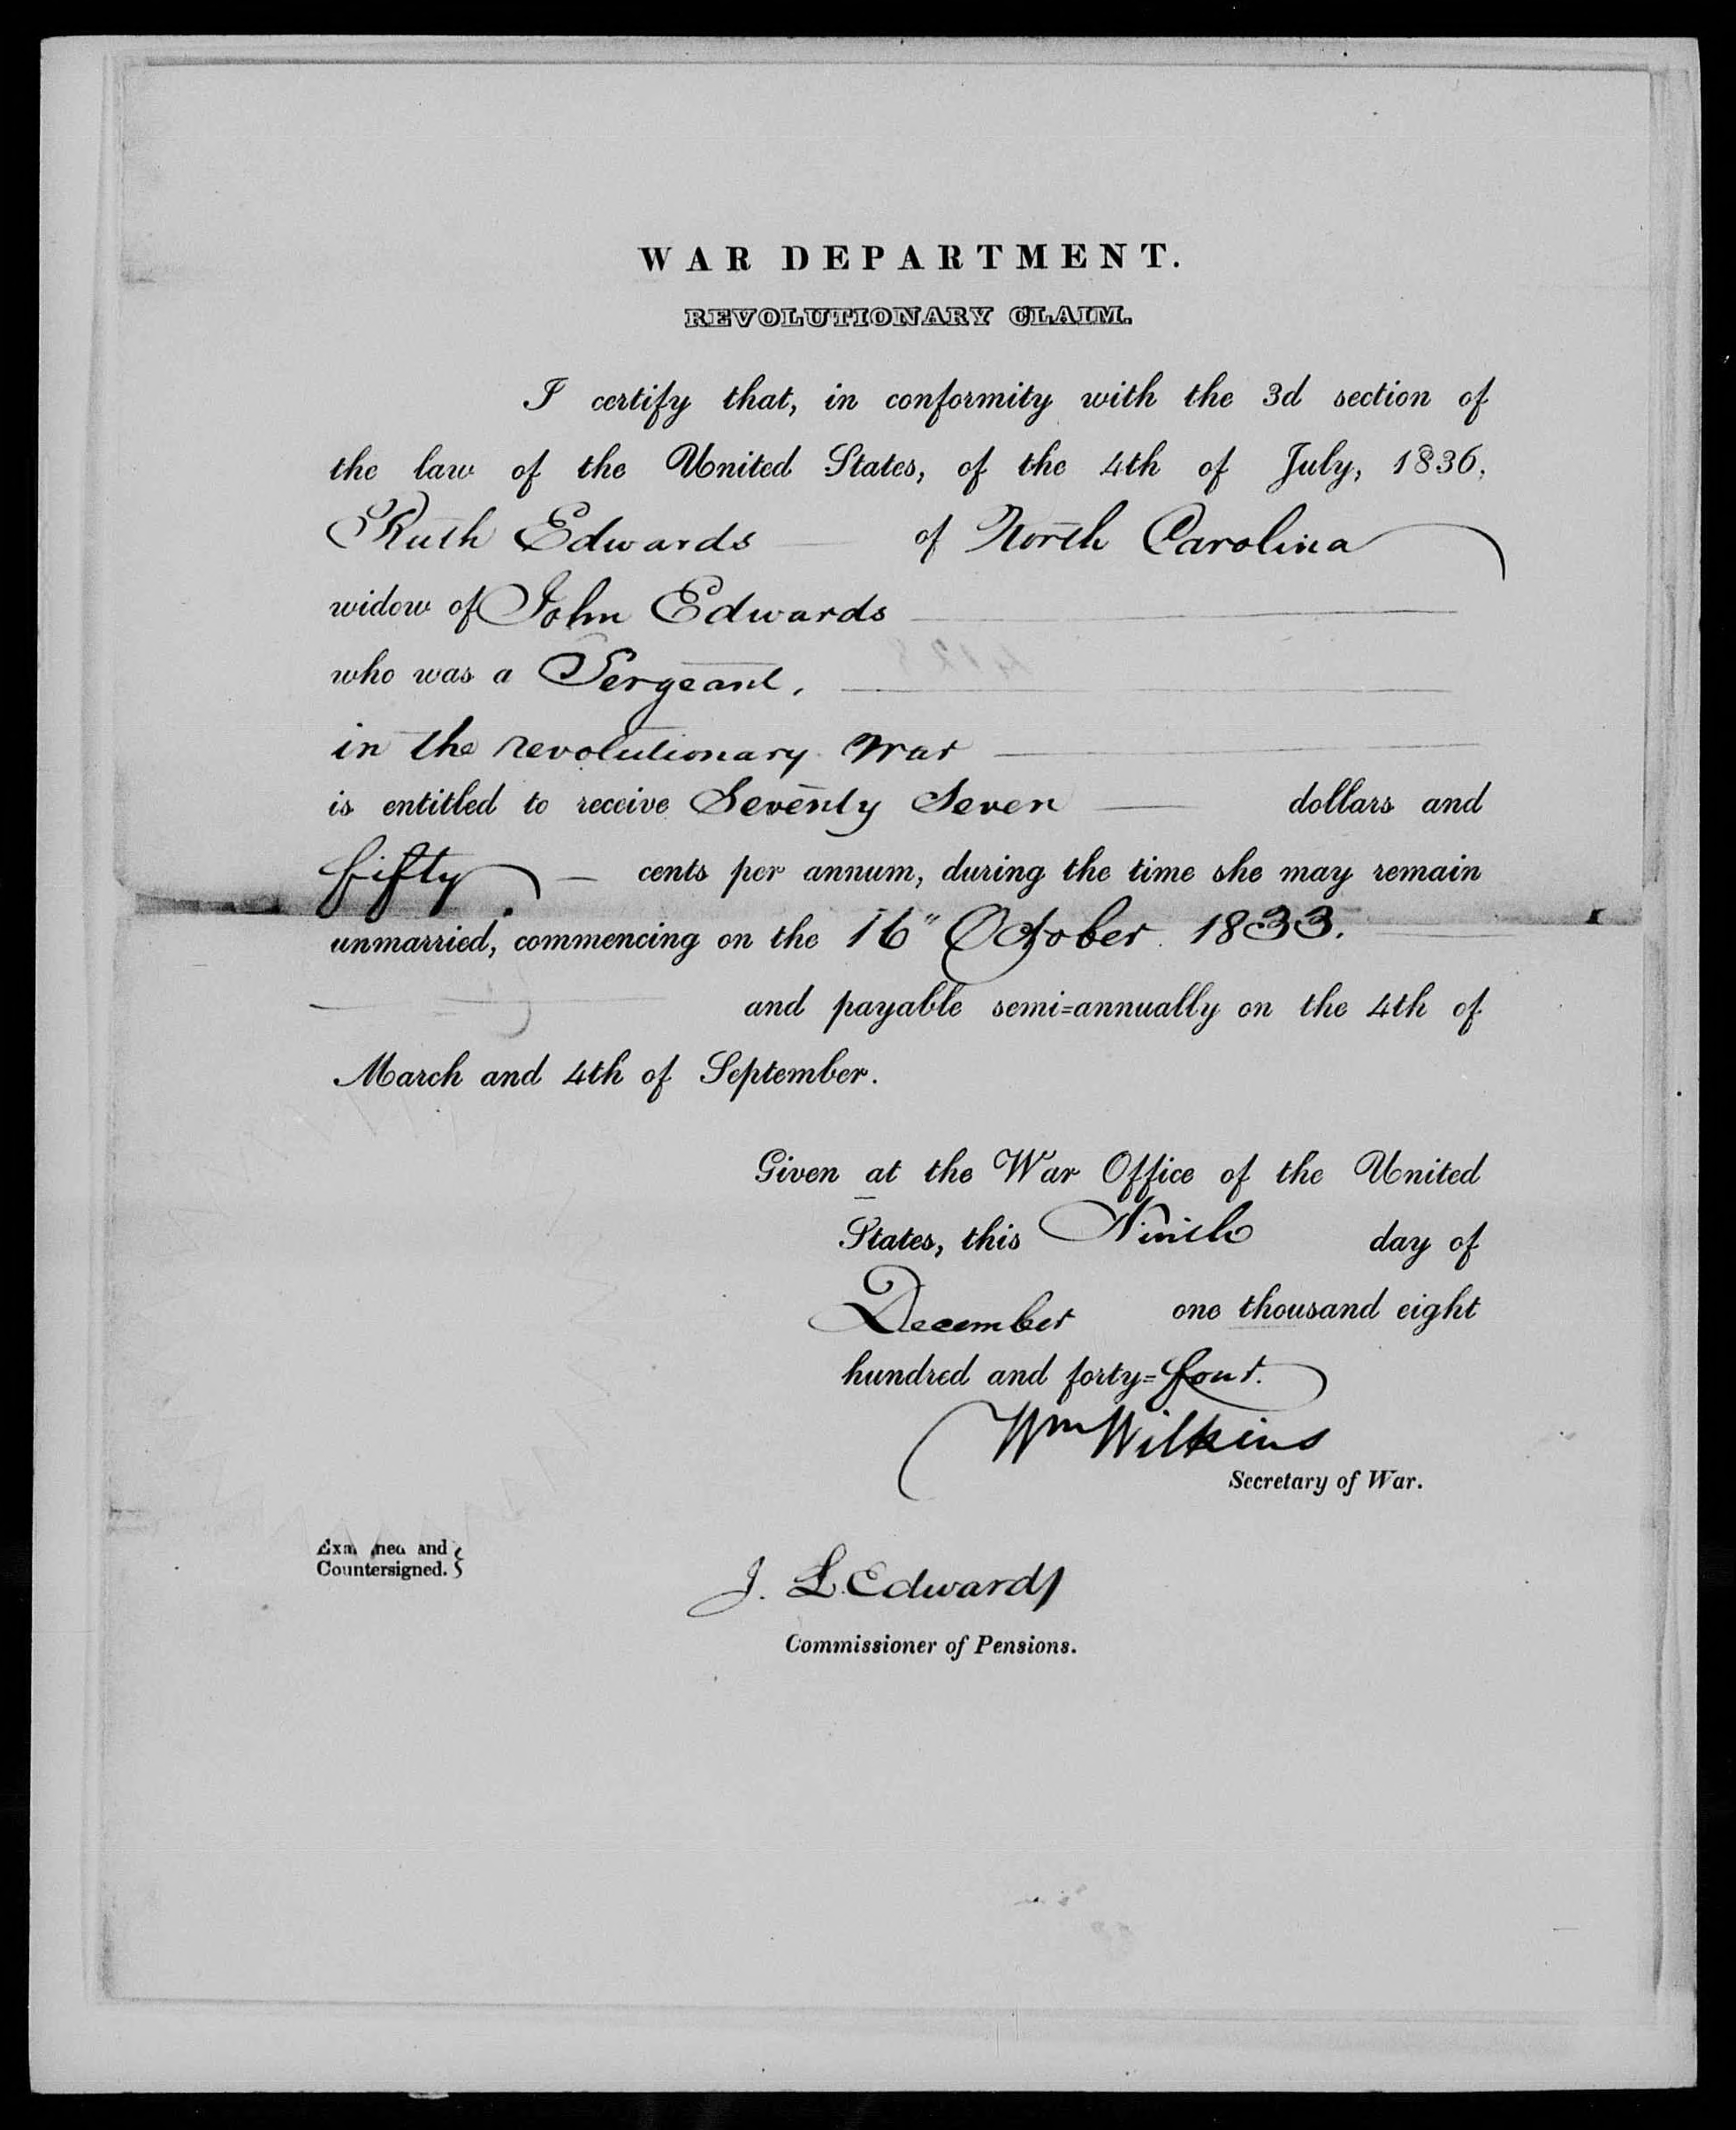 WAR DEPARTMENT.
REVOLUTIONARY CLAIM.
I certify that, in conformity with the 3d section of
the law of the United States, of the 4th of July, 1836,
Ruth Edwards of North Carolina
widow of John Edwards
who was a Sergeant.
in the revolutionary war
is entitled to receive Seventy Seven dollars and
fifty cents per annum, during the time she may remain
unmarried, commencing on the 16" October 1833.
and payable semi=annually on the 4th of
March and 4th of September.
Given at the War Office of the United
States, this Ninth day of
December one thousand eight
hundred and forty=four.
Wm Wilkins
Secretary of War.
Examined and
Countersigned.
J. L. Edwards
Commissioner of Pensions.